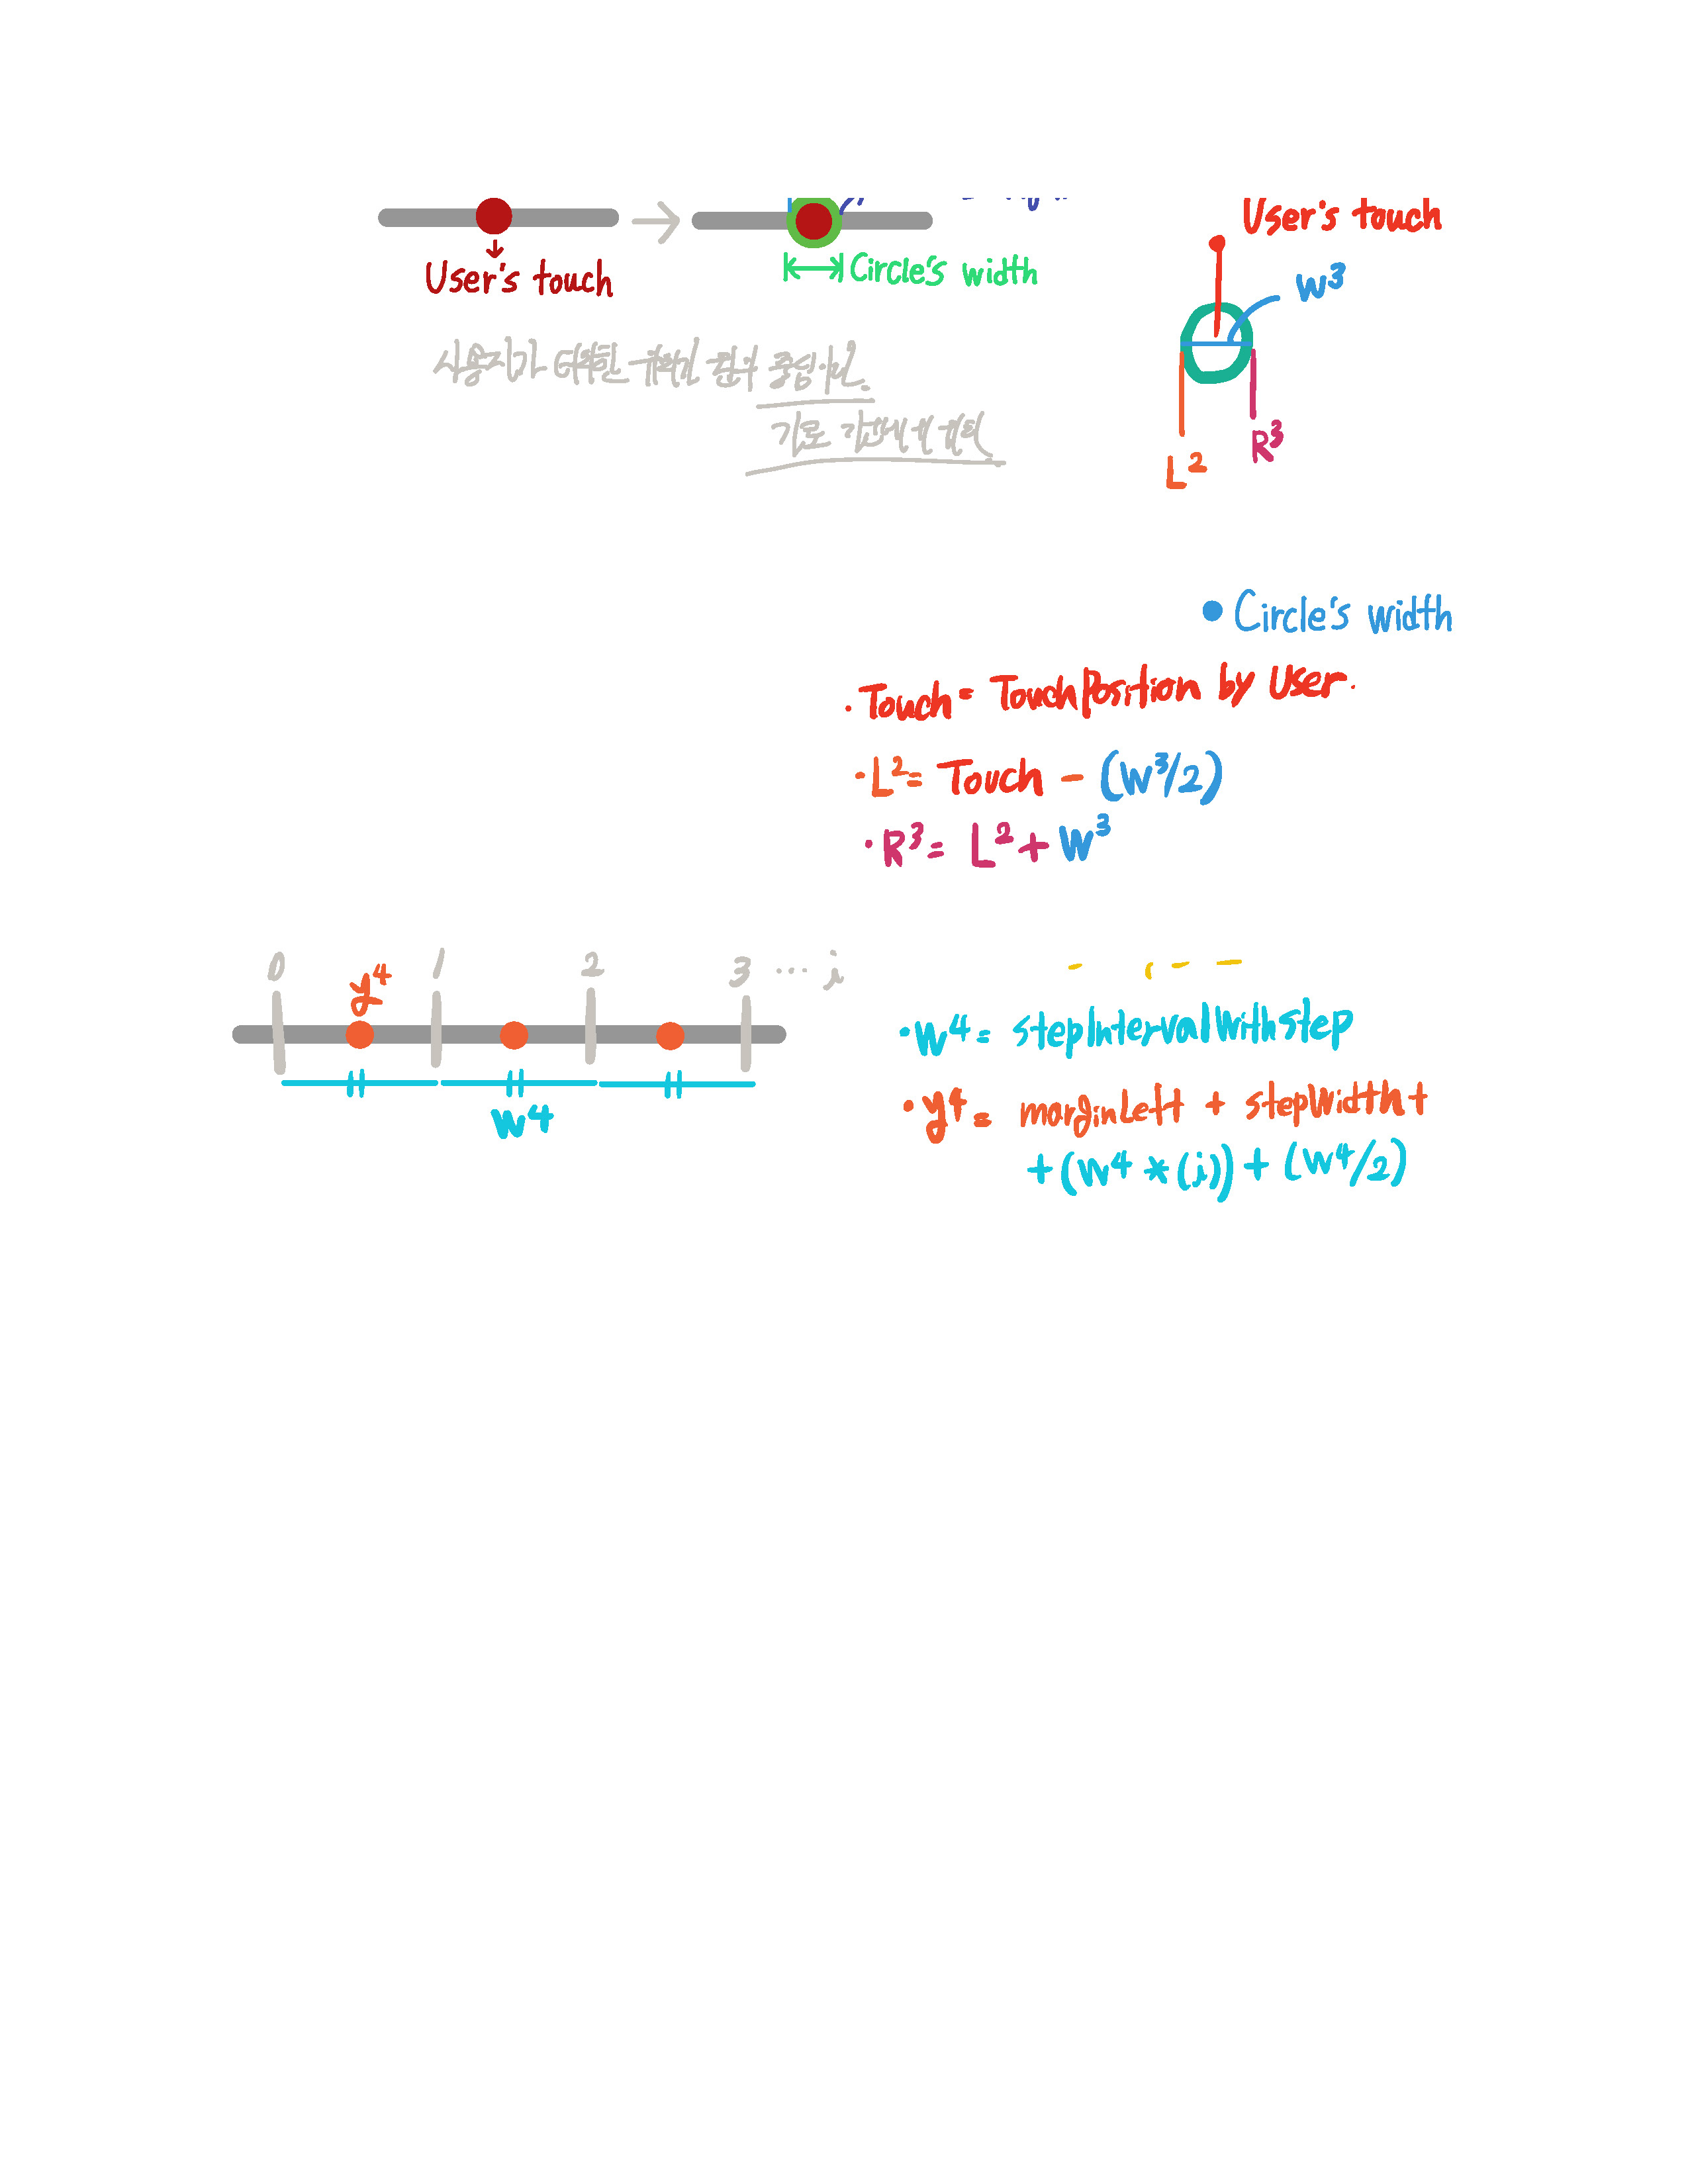 User's touch
Circle's width
사용자가 터치한
중심
기로
User's touch
W³
R³
L²
Circle's width
· Touch = TouchPosition by User.
· L² = Touch - (W³/2)
· R³ = L² + W³
0 1 2 3 ... i
y⁴
W⁴
· W⁴ = stepIntervalWithStep
· y⁴ = marginLeft + stepWidth +
+ (W⁴ * (i)) + (W⁴/2)